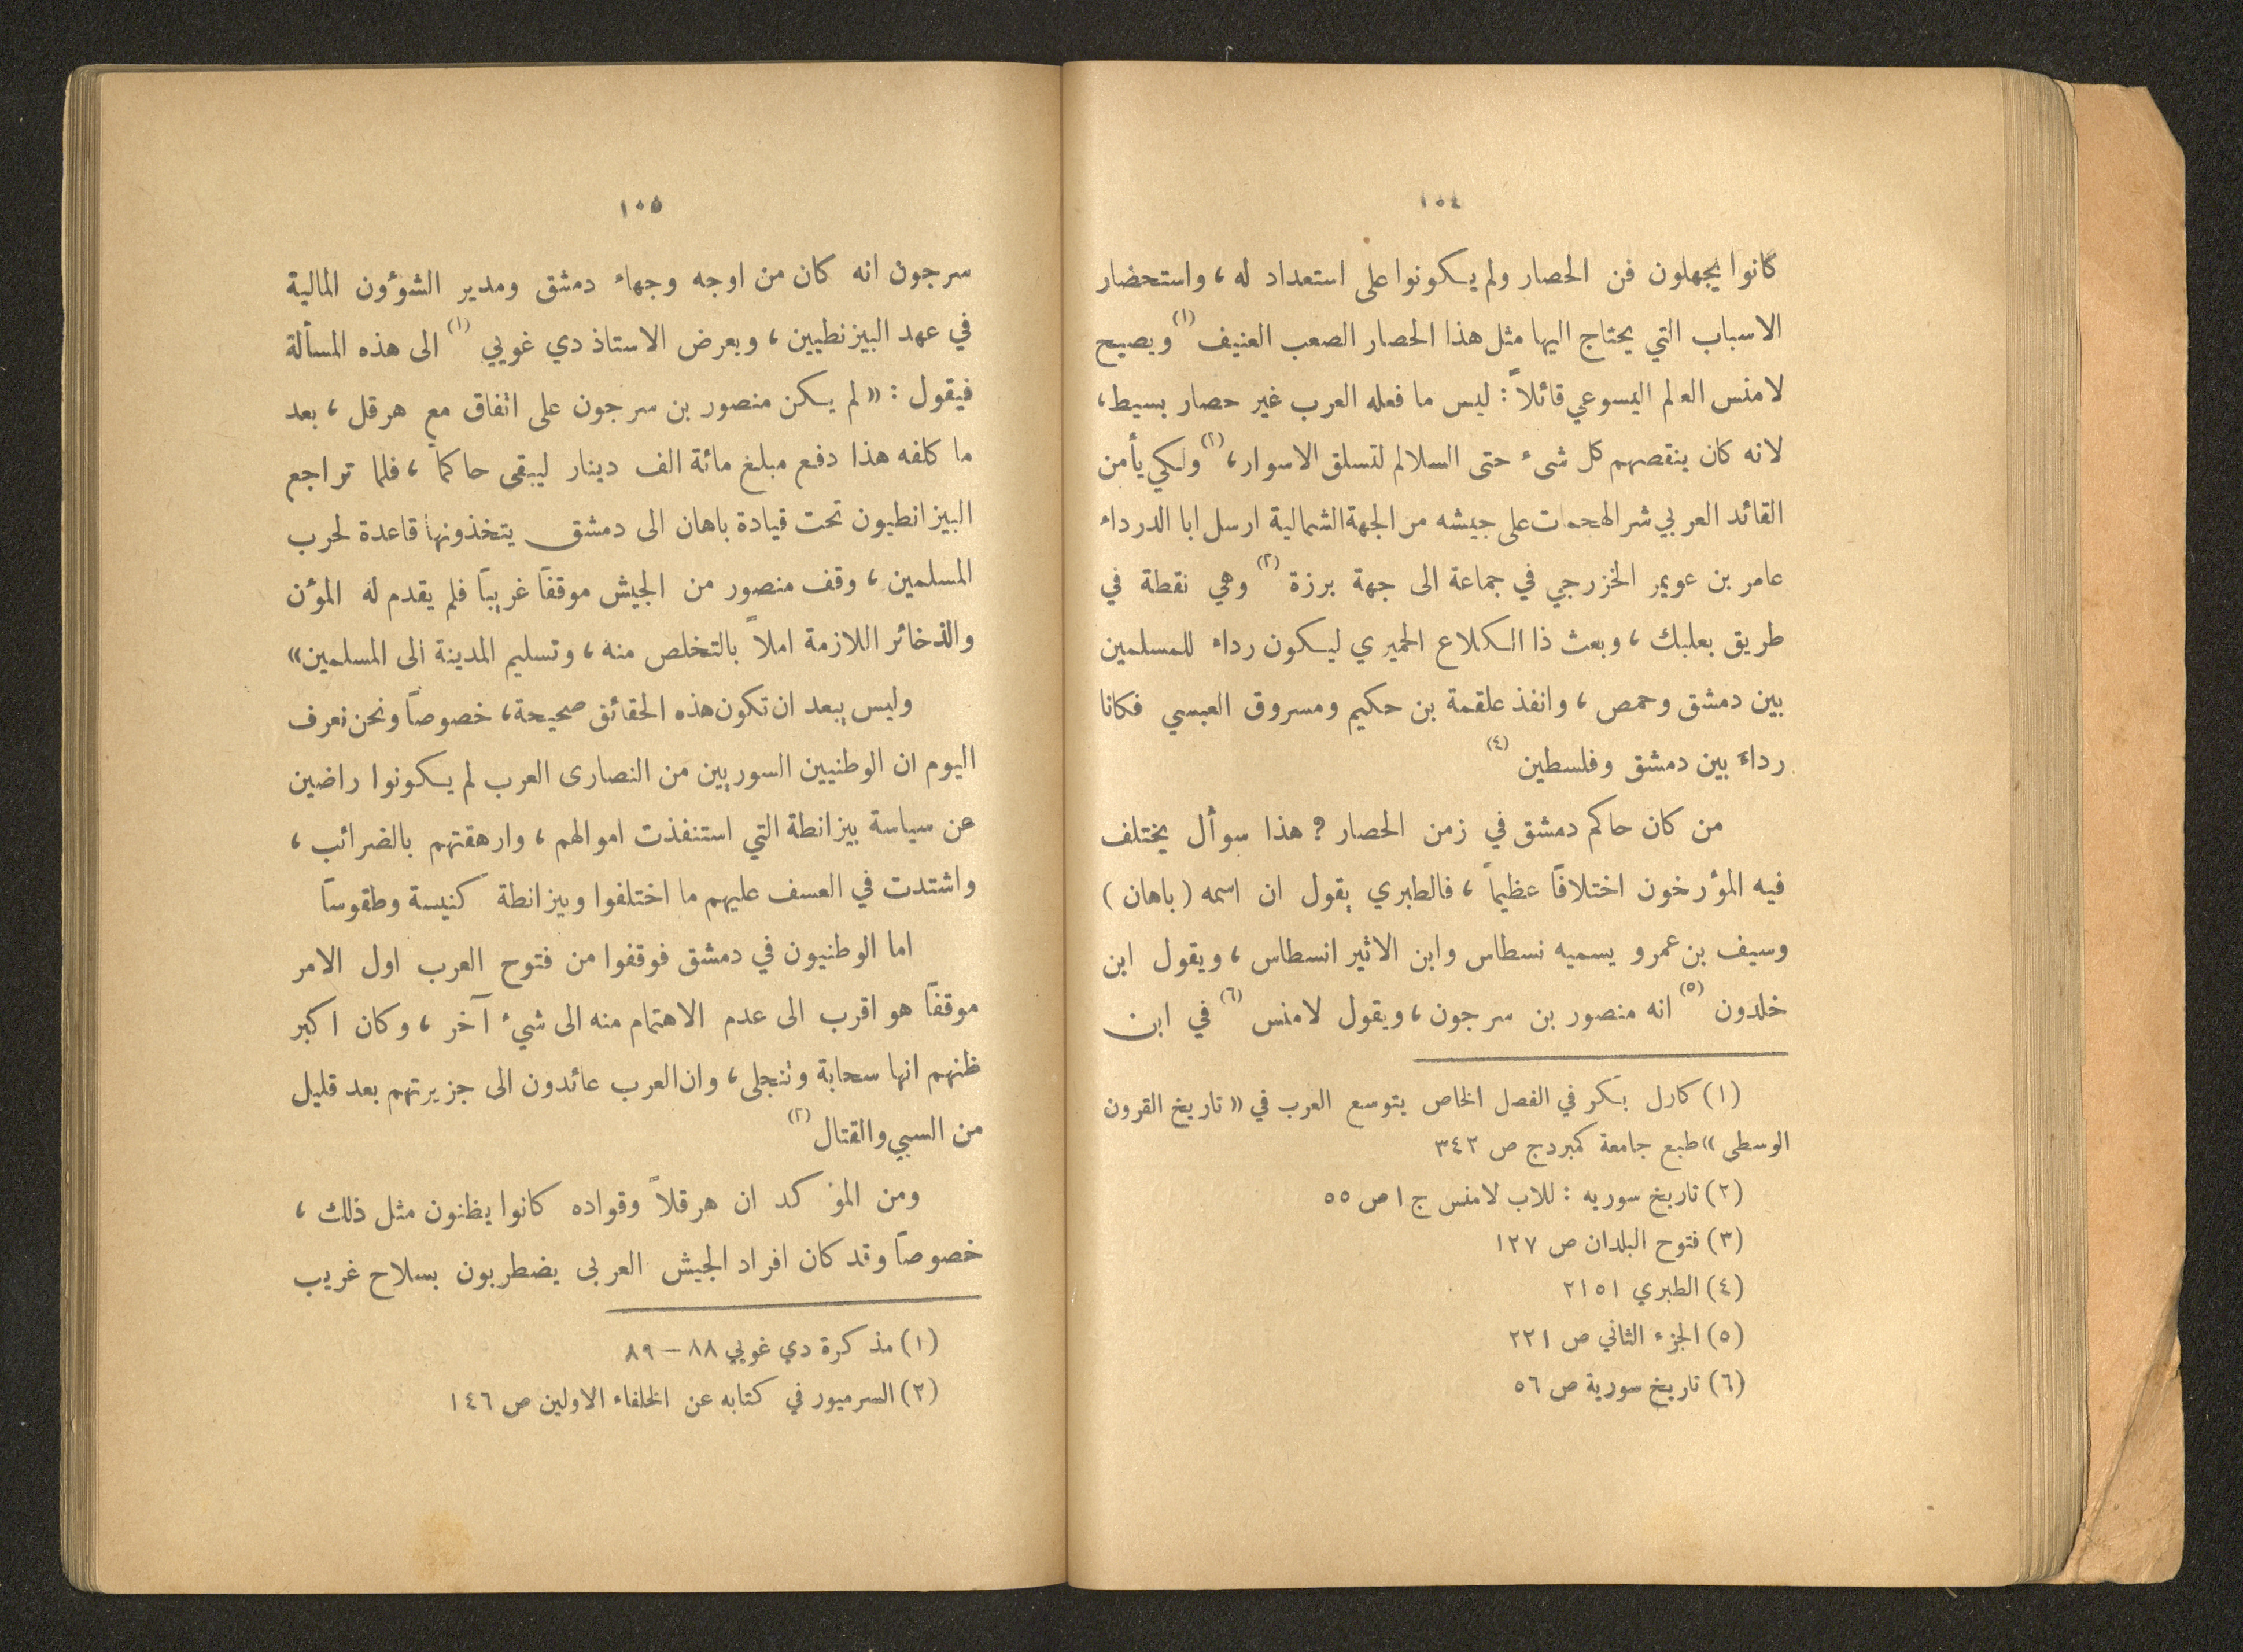 ١٠٤
كانوا يجهلون فن الحصار ولم يكونوا على استعداد له ، واستحضار
الاسباب التي يحتاج اليها مثل هذا الحصار الصعب العنيف (١) ويصيح
لامنس العالم اليسوعي قائلاً : ليس ما فعله العرب غير حصار بسيط ،
لانه كان ينقصهم كل شىء حتى السلالم لتسلق الاسوار ، (٢) ولكي يأمن
القائد العربي شر الهجمات على جيشه من الجهة الشمالية ارسل ابا الدرداء
عامر بن عويمر الخزرجي في جماعة الى جهة برزة (٣) وهي نقطة في
طريق بعلبك ، وبعث ذا الكلاع الحميري ليكون رداء للمسلمين
بين دمشق وحمص ، وانفذ علقمة بن حكيم ومسروق العبسي فكانا
رداءً بين دمشق وفلسطين (٤)
من كان حاكم دمشق في زمن الحصار ؟ هذا سوأل يختلف
فيه المؤرخون اختلافاً عظيماً ، فالطبري يقول ان اسمه ( باهان )
وسيف بن عمرو يسميه نسطاس وابن الاثير انسطاس ، ويقول ابن
خلدون (٥) انه منصور بن سرجون ، ويقول لامنس (٦) في ابن
(١) كارل بكر في الفصل الخاص بتوسع العرب في « تاريخ القرون
الوسطى » طبع جامعة كمبردج ص ٣٤٢
(٢) تاريخ سوريه : للاب لامنس ج ١ ص ٥٥
(٣) فتوح البلدان ص ١٢٧
(٤) الطبري ٢١٥١
(٥) الجزء الثاني ص ٢٢١
(٦) تاريخ سورية ص ٥٦
١٠٥
سرجون انه كان من اوجه وجهاء دمشق ومدير الشوؤون المالية
في عهد البيزنطيين ، وبعرض الاستاذ دي غويي (١) الى هذه المسألة
فيقول : « لم يكن منصور بن سرجون على اتفاق مع هرقل ، بعد
ما كلفه هذا دفع مبلغ مائة الف دينار ليبقى حاكماً ، فلما تراجع
البيزانطيون تحت قيادة باهان الى دمشق يتخذونها قاعدة لحرب
المسلمين ، وقف منصور من الجيش موقفاً غريباً فلم يقدم له المؤن
والذخائر اللازمة املاً بالتخلص منه ، وتسليم المدينة الى المسلمين »
وليس ببعد ان تكون هذه الحقائق صحيحة ، خصوصاً ونحن نعرف
اليوم ان الوطنيين السوريين من النصارى العرب لم يكونوا راضين
عن سياسة بيزانطة التي استنفذت اموالهم ، وارهقتهم بالضرائب ،
واشتدت في العسف عليهم ما اختلفوا وبيزانطة كنيسة وطقوساً
اما الوطنيون في دمشق فوقفوا من فتوح العرب اول الامر
موقفاً هو اقرب الى عدم الاهتمام منه الى شيء آخر ، وكان اكبر
ظنهم انها سحابة وتنجلى ، وان العرب عائدون الى جزيرتهم بعد قليل
من السبي والقتال (٢)
ومن المؤكد ان هرقلاً وقواده كانوا يظنون مثل ذلك ،
خصوصاً وقد كان افراد الجيش العربى يضطربون بسلاح غريب
(١) مذكرة دي غويي ٨٨ — ٨٩
(٢) السر ميور في كتابه عن الخلفاء الاولين ص ١٤٦